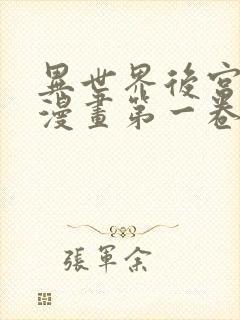 異世界後宮
漫畫第一卷
張軍余